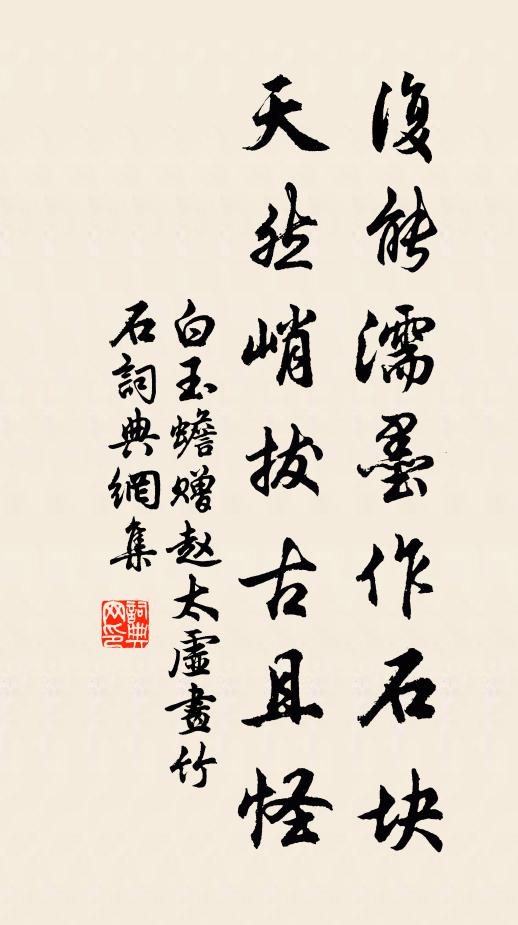 復能濡墨作石块
天然峭拔古且怪
白玉蟾赠赵太虚畫竹
石詞典網集
詞典网印